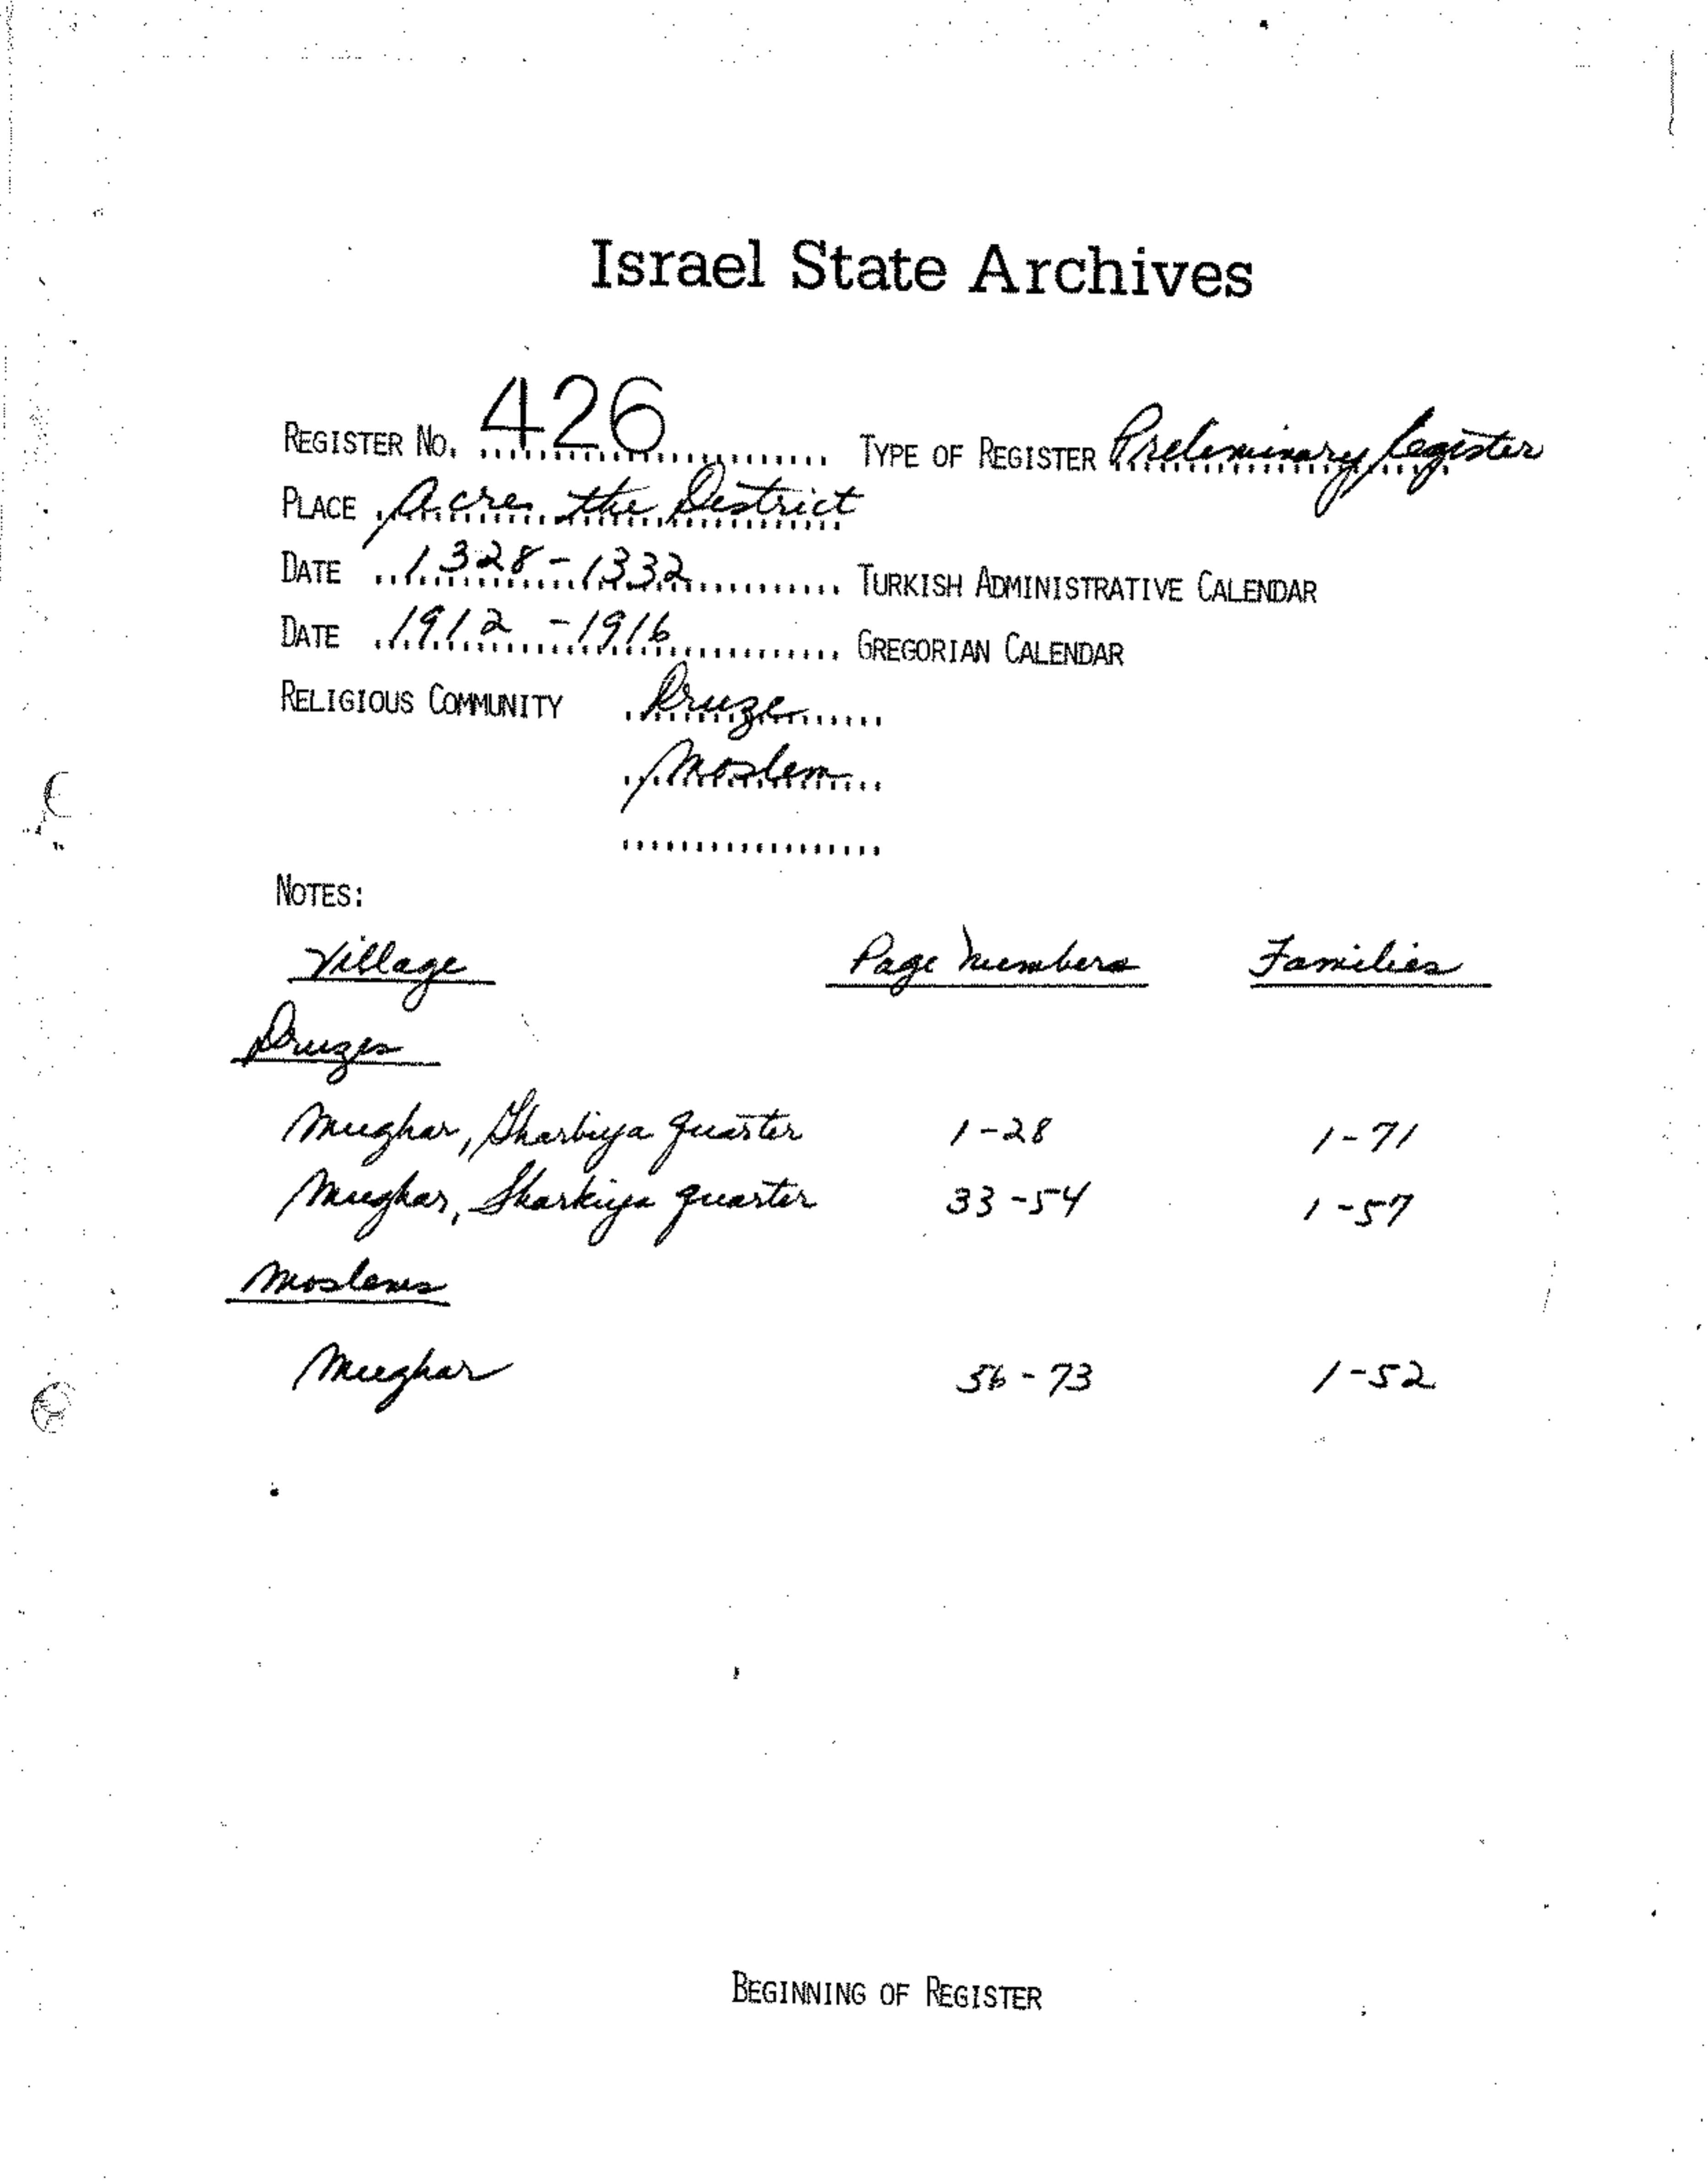 Israel State Archives
REGISTER No. 426 TYPE OF REGISTER Preliminary Register
PLACE Acre, the District
DATE 1328-1332 TURKISH ADMINISTRATIVE CALENDAR
DATE 1912-1916 GREGORIAN CALENDAR
RELIGIOUS COMMUNITY Druze
Moslem
NOTES:
Village Page Numbers Families
Druzes
Mughar, Gharbiya quarter 1-28 1-71
Mughar, Sharkiya quarter 33-54 1-57
Moslems
Mughar 56-73 1-52
BEGINNING OF REGISTER